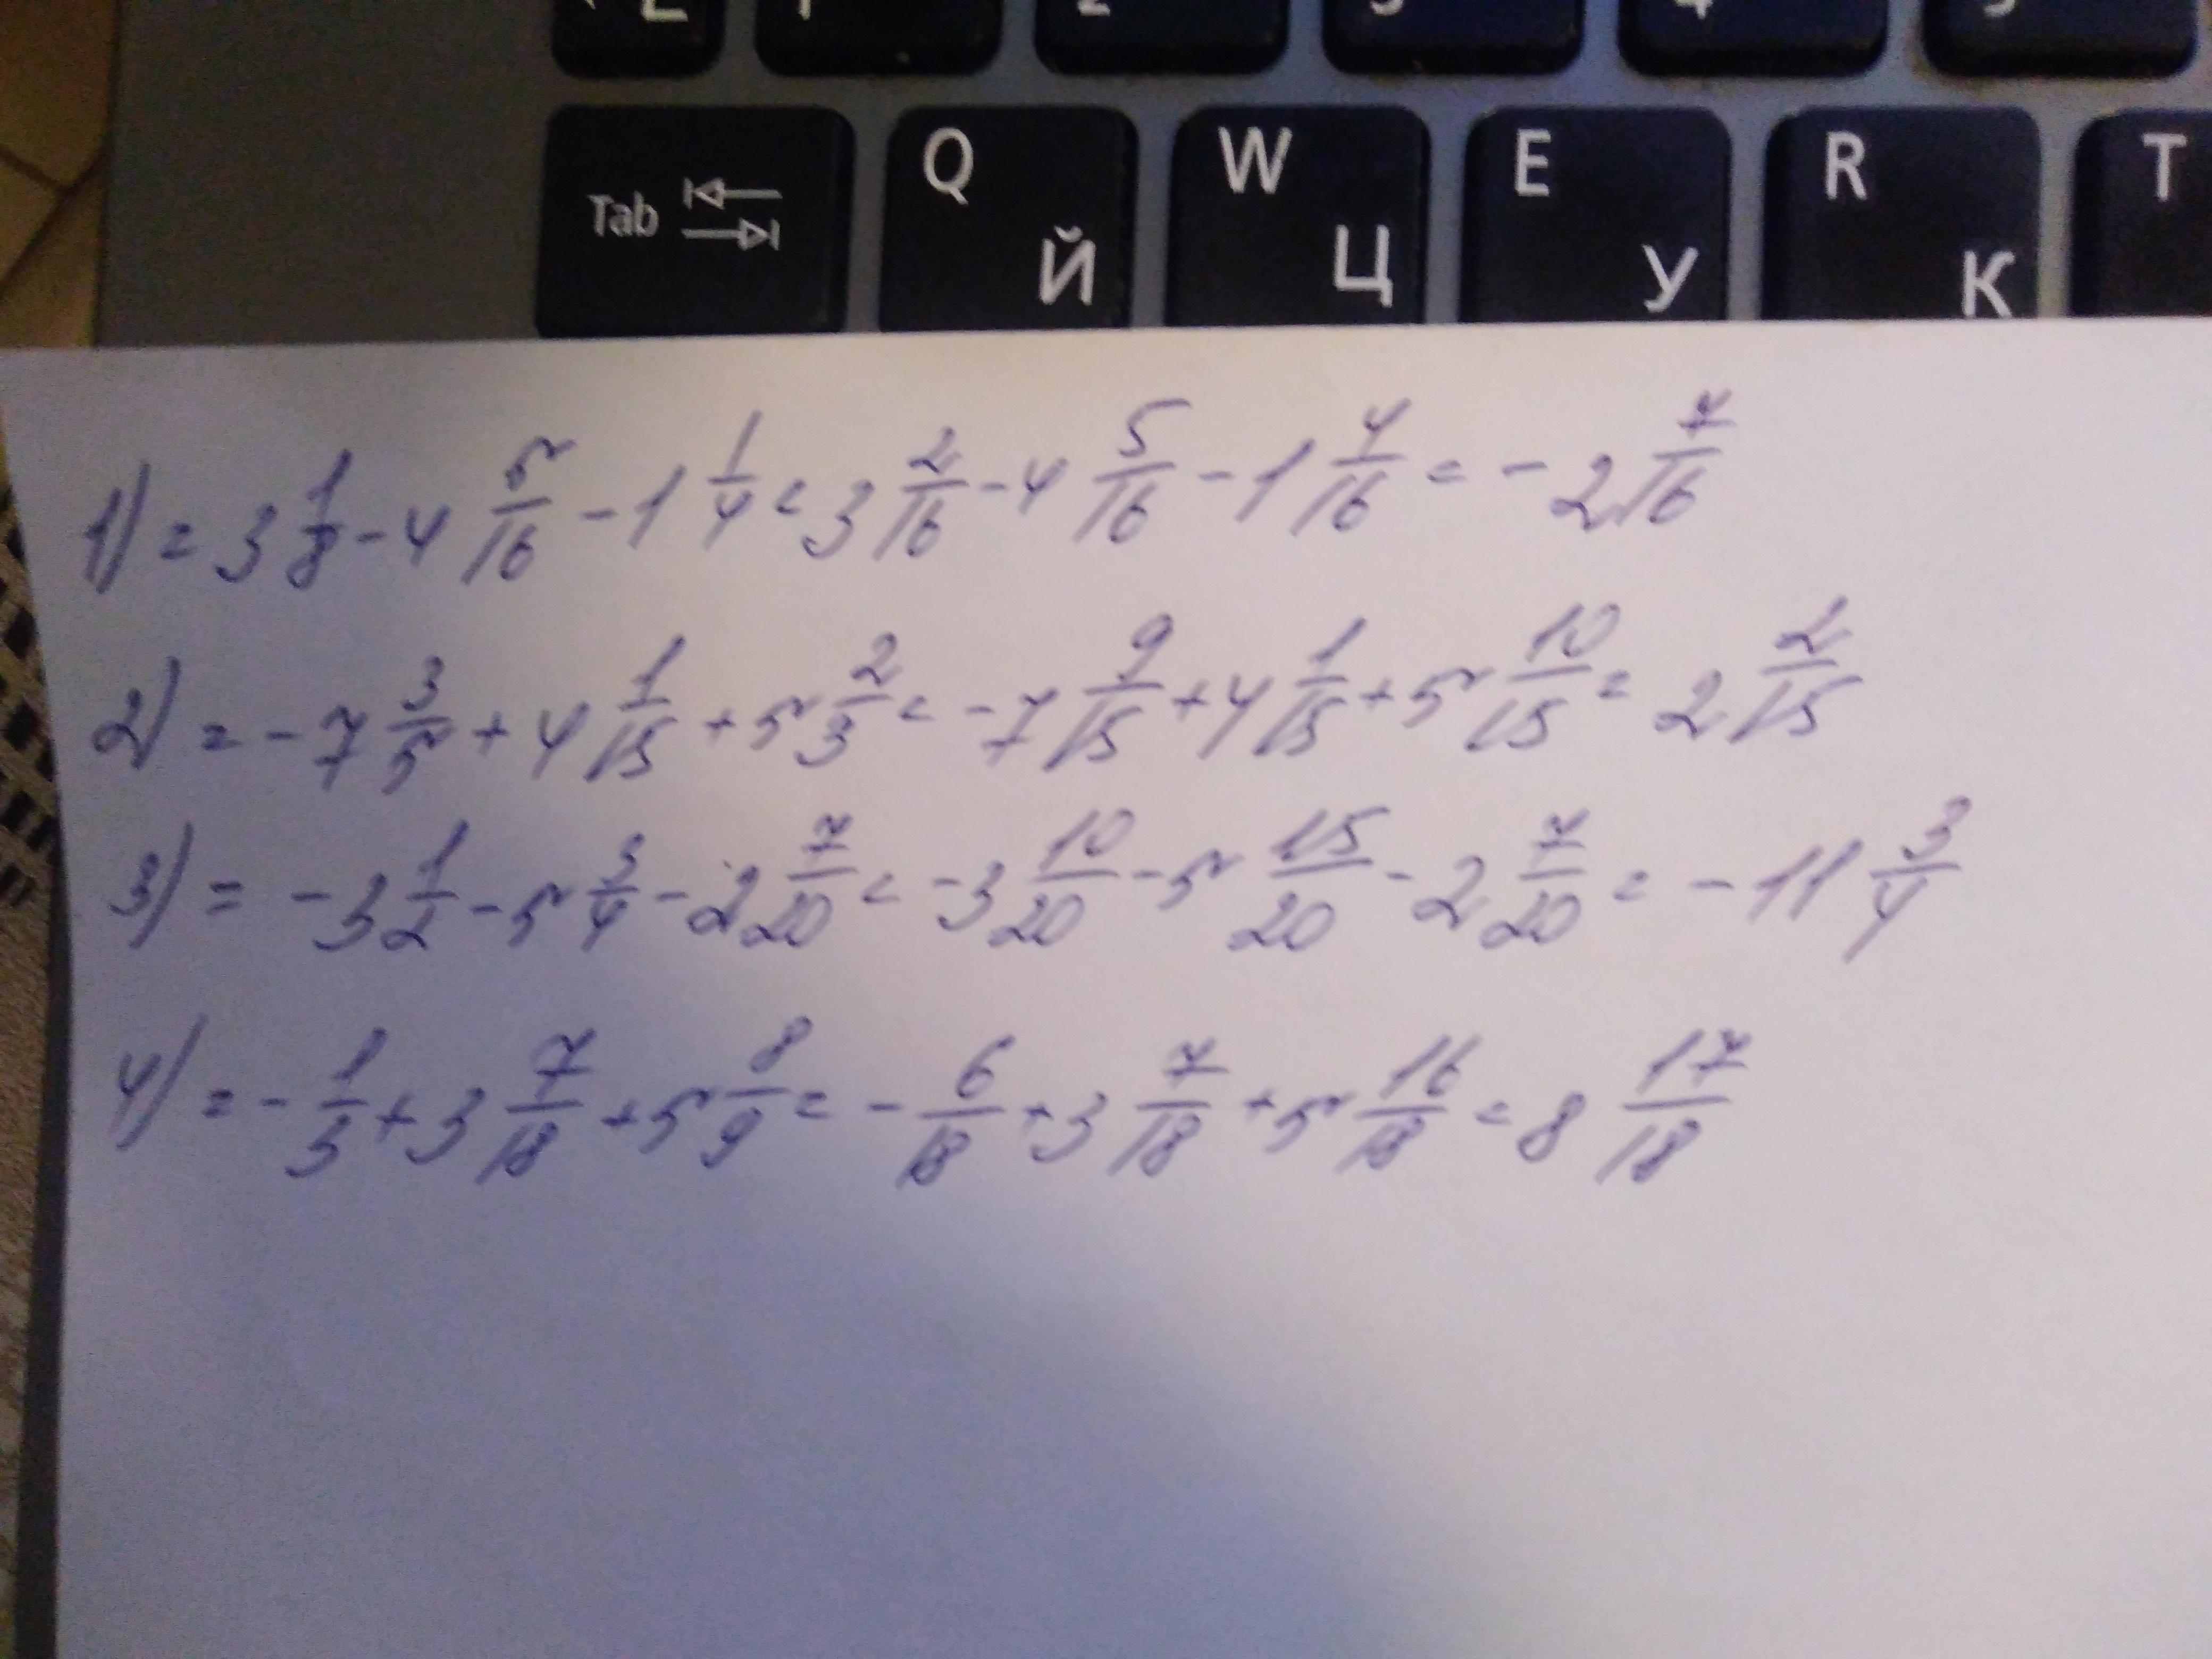 1 2 3 4 5
Tab Q W E R T
Й Ц У К
1) = 3 1/8 - 4 5/16 - 1 1/4 = 3 2/16 - 4 5/16 - 1 4/16 = - 2 7/16
2) = - 7 3/5 + 4 1/15 + 5 2/3 = - 7 9/15 + 4 1/15 + 5 10/15 = 2 2/15
3) = - 3 1/2 - 5 3/4 - 2 7/20 = - 3 10/20 - 5 15/20 - 2 7/20 = - 11 3/4
4) = - 1/3 + 3 7/18 + 5 8/9 = - 6/18 + 3 7/18 + 5 16/18 = 8 17/18